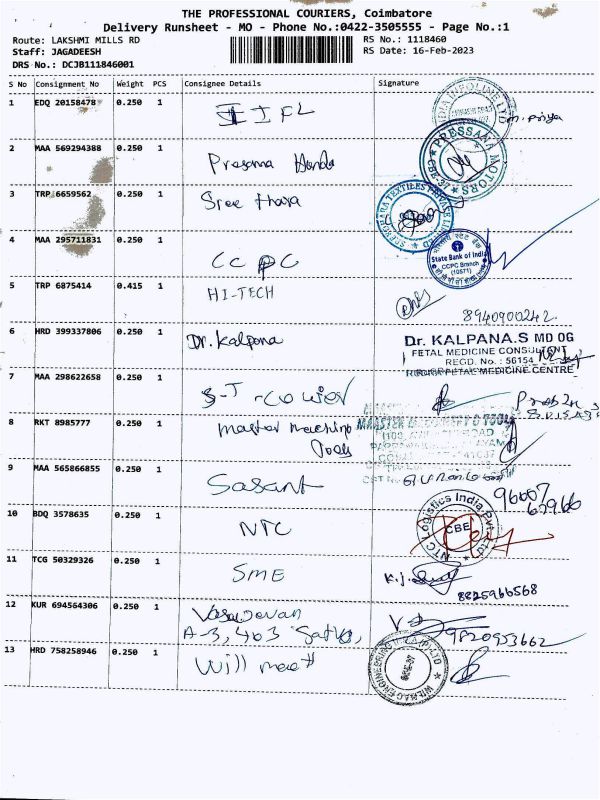 THE PROFESSIONAL COURIERS, Coimbatore
Delivery Runsheet - MO - Phone No.:0422-3505555 - Page No.:1
Route: LAKSHMI MILLS RD
RS No.: 1118460
Staff: JAGADEESH
RS Date: 16-Feb-2023
DRS No.: DCJB111846001
S No Consignment No Weight PCS Consignee Details Signature
1 EDQ 20158478 0.250 1 IIFL
2 MAA 569294388 0.250 1
PRESSANA MOTORS
CBE-37
3 TRP 6659562 0.250 1 Sree thara
4 MAA 295711831 0.250 1 CCPC
State Bank of India
CCPC Branch
(10571)
5 TRP 6875414 0.415 1 HI-TECH
8940900242.
6 HRD 399337806 0.250 1 Dr. Kalpana
Dr. KALPANA.S MD OG
FETAL MEDICINE CONSULTENT
REGD. No. : 56154
FETAL MEDICINE CENTRE
7 MAA 298622658 0.250 1
8 RKT 8985777 0.250 1 Master machino
Tools
9 MAA 565866855 0.250 1 Sasant
96007
10 BDQ 3578635 0.250 1 NTC
NTC Logistics India Pvt. Ltd
CBE
11 TCG 50329326 0.250 1 SME
8825966568
12 KUR 694564306 0.250 1
A-3, 403
9820953662
13 HRD 758258946 0.250 1 Will meet